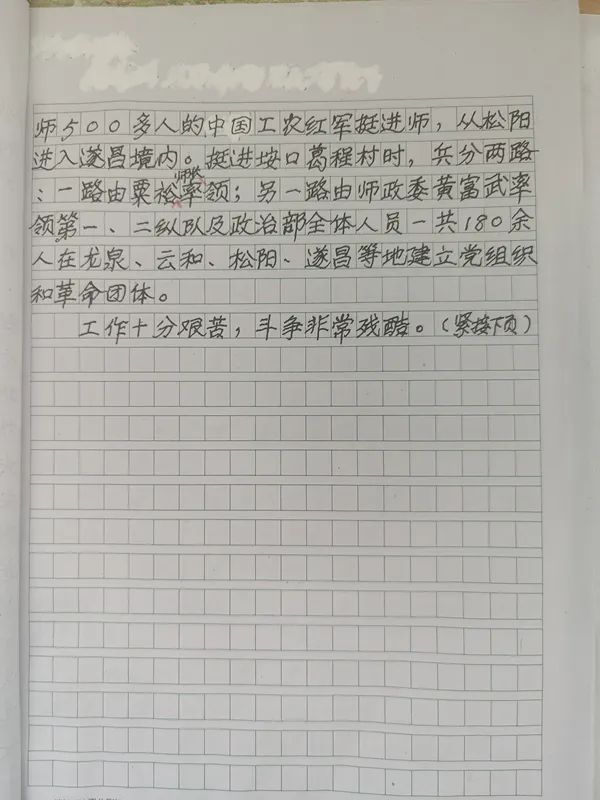 师500多人的中国工农红军挺进师，从松阳
进入遂昌境内。挺进垵口葛程村时，兵分两路
：一路由粟裕师长率领；另一路由师政委黄富武率
领第一、二纵队及政治部全体人员一共180余
人在龙泉、云和、松阳、遂昌等地建立党组织
和革命团体。
工作十分艰苦，斗争非常残酷。（紧接下页）